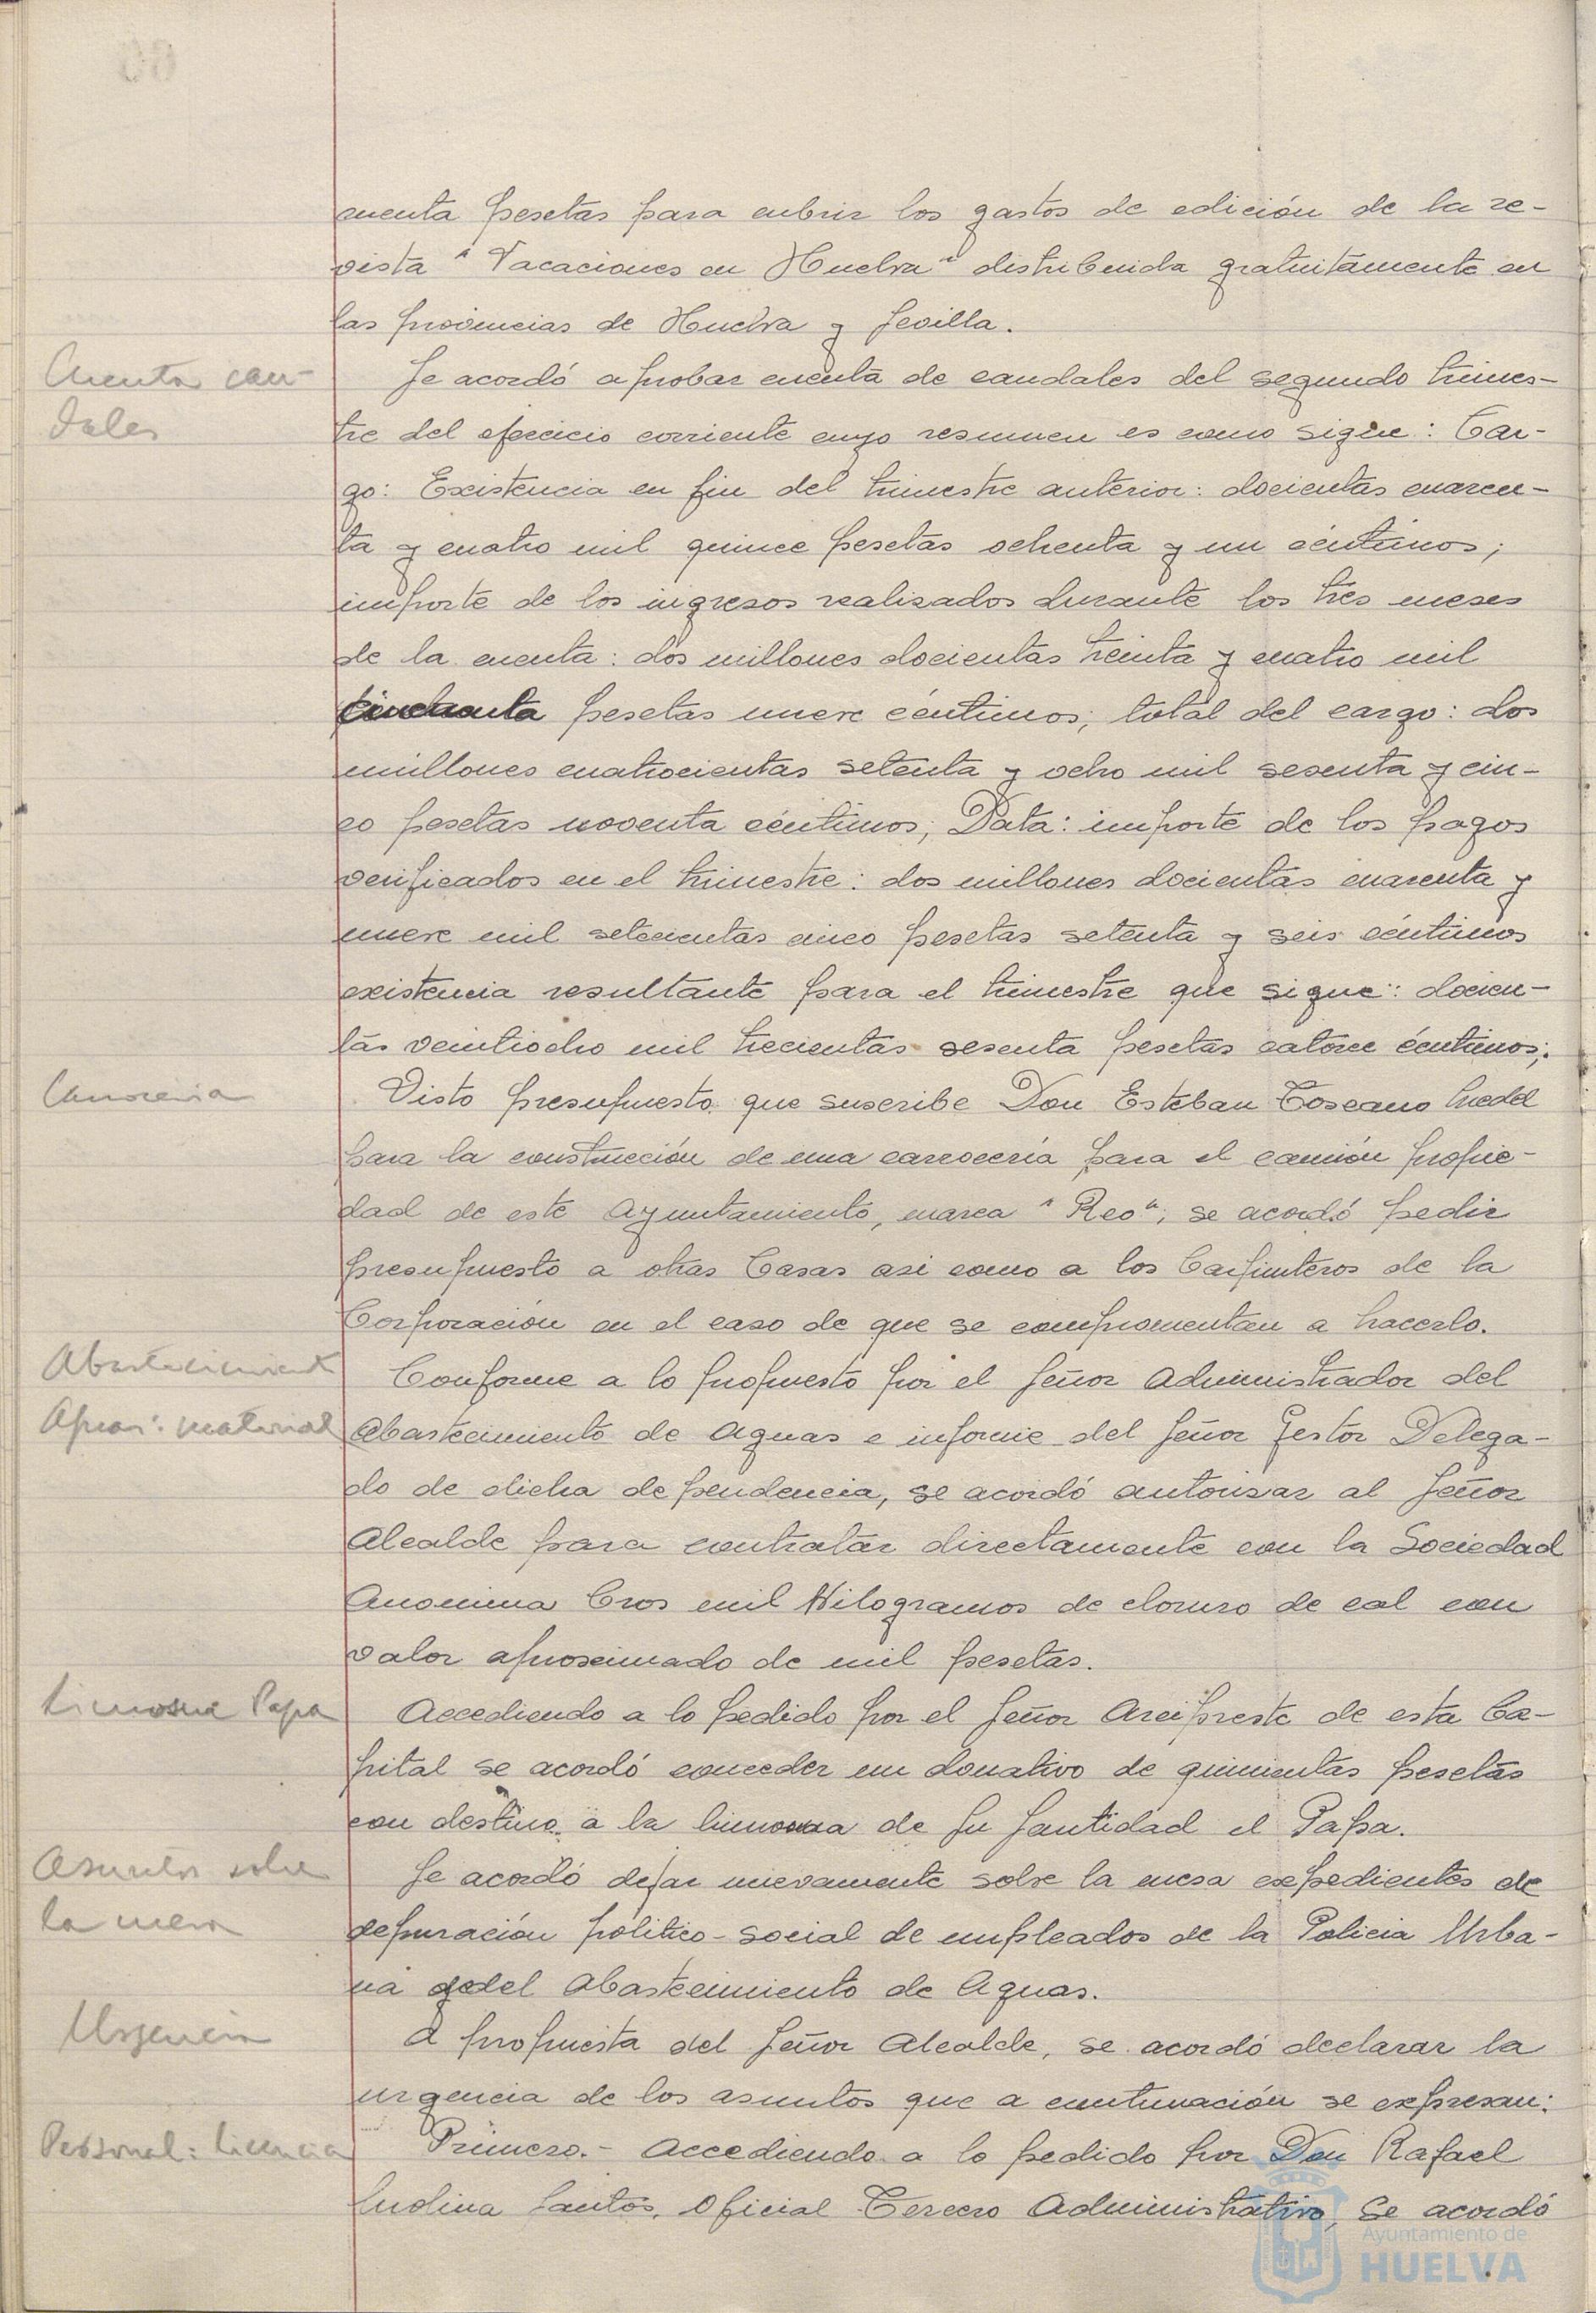 cuenta pesetas para cubrir los gastos de edición de la re-
vista "Vacaciones en Huelva" distribuida gratuitamente en
las provincias de Huelva y Sevilla.
Cuenta cau-
dales
Se acordó aprobar cuenta de caudales del segundo trimes-
tre del ejercicio corriente cuyo resumen es como sigue: Car-
go: Existencia en fin del trimestre anterior: docientas cuaren-
ta y cuatro mil quince pesetas ochenta y un céntimos;
importe de los ingresos realizados durante los tres meses
de la cuenta: dos millones docientas treinta y cuatro mil
cincuenta pesetas nueve céntimos; total del cargo: dos
millones cuatrocientas setenta y ocho mil sesenta y cin-
co pesetas noventa céntimos; Data: importe de los pagos
verificados en el trimestre: dos millones docientas cuarenta y
nueve mil setecientas cinco pesetas setenta y seis céntimos
existencia resultante para el trimestre que sigue: docien-
tas veintiocho mil trecientas sesenta pesetas catorce céntimos;.
Visto presupuesto que suscribe Don Esteban Toscano
para la construcción de una carrocería para el camión propie-
dad de este Ayuntamiento, marca "Reo"; se acordó pedir
presupuesto a otras Casas asi como a los Carpinteros de la
Corporación en el caso de que se compromentan a hacerlo.
Abastecimiento
Aguas: material
Conforme a lo propuesto por el Señor Administrador del
Abastecimiento de Aguas e informe del Señor Gestor Delega-
do de dicha dependencia, se acordó autorizar al Señor
Alcalde para contratar directamente con la Sociedad
Anonima Cros mil Kilogramos de cloruro de cal con
valor aproximado de mil pesetas.
Limosna Papa
Accediendo a lo pedido por el Señor Arcipreste de esta Ca-
pital se acordó conceder un donativo de quinientas pesetas
con destino a la limosna de Su Santidad el Papa.
Asuntos sobre
la mesa
Se acordó dejar nuevamente sobre la mesa expedientes de
depuración politico-social de empleados de la Policia Urba-
na y del Abastecimiento de Aguas.
Urgencia
A propuesta del Señor Alcalde, se acordó declarar la
urgencia de los asuntos que a continuación se expresan:
Personal: licencia
Primero.- Accediendo a lo pedido por Don Rafael
Santos, Oficial Tercero Administrativo, se acordó
Ayuntamiento de
HUELVA